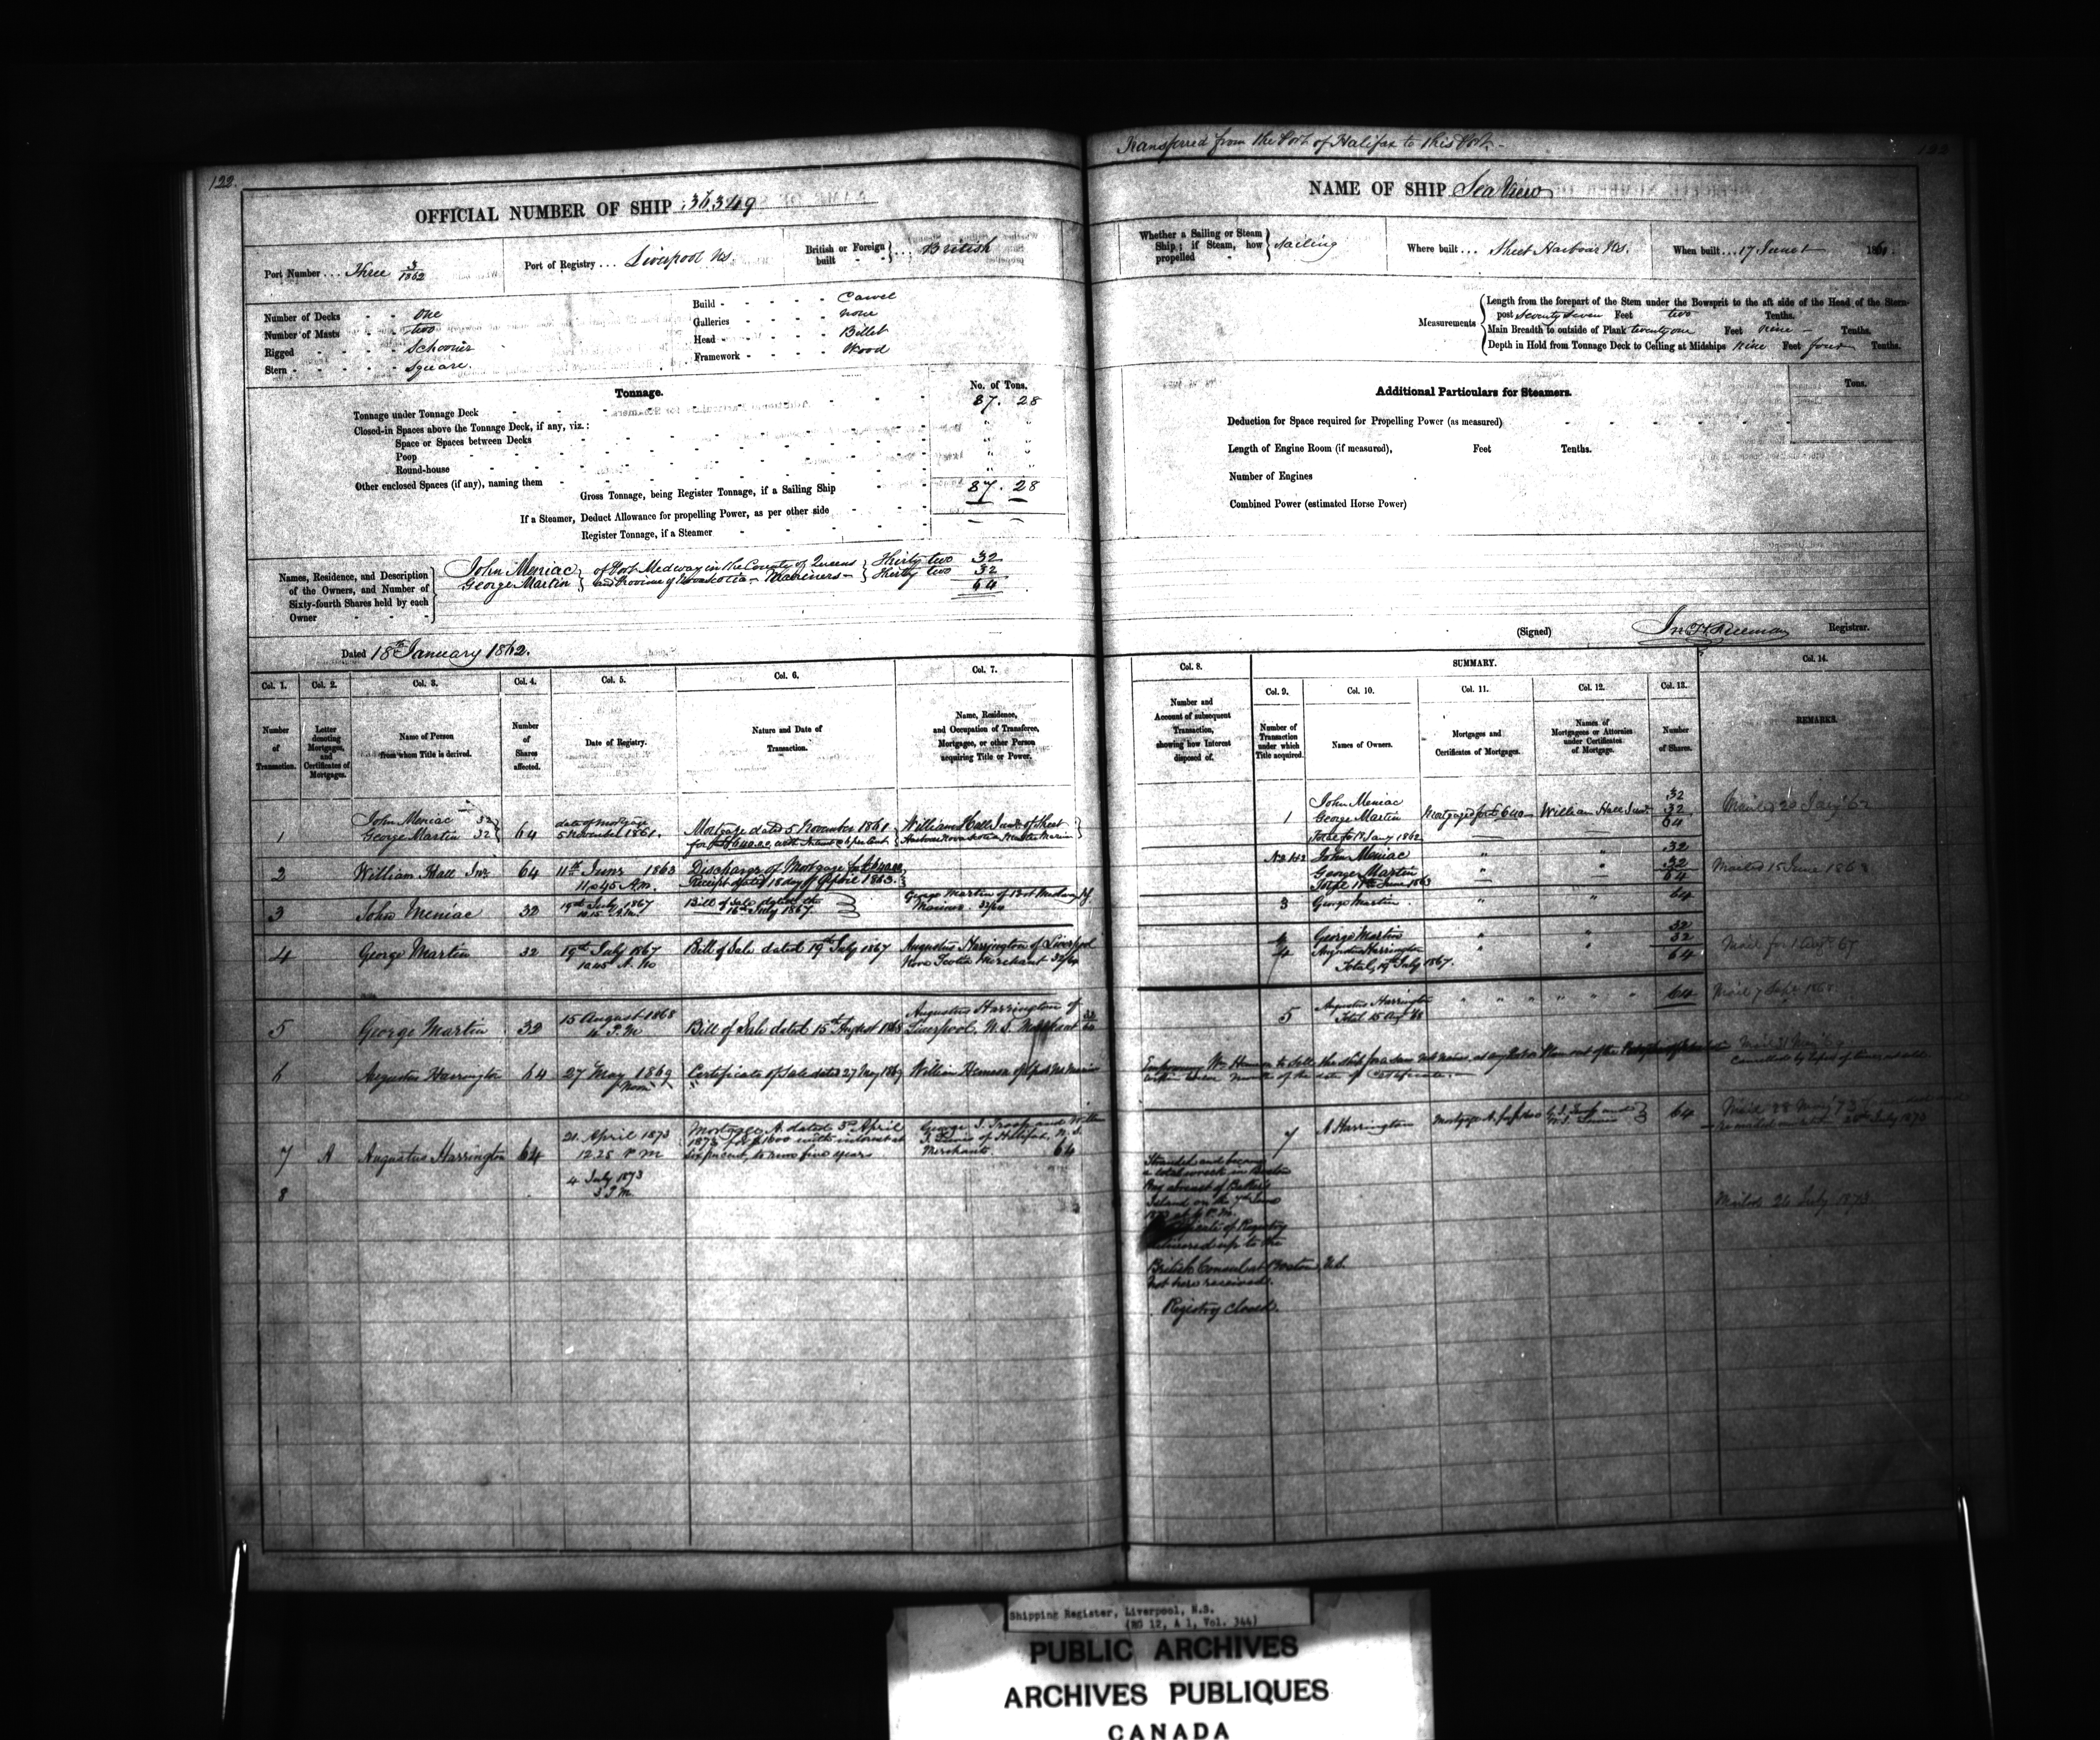 Transferred from the Port of Halifax to this Port.
122
OFFICIAL NUMBER OF SHIP 36349
NAME OF SHIP Sea View
Port Number ... Three 3/1862
Port of Registry ... Liverpool NS.
British or Foreign built ... British
Whether a Sailing or Steam Ship; if Steam, how propelled Sailing
Where built ... Sheet Harbour NS.
When built ... 17 June 1861.
Number of Decks - - One
Number of Masts - - two
Rigged - - - Schooner
Stern - - - Square.
Build - - - - Carvel
Galleries - - - - none
Head - - - - Billet
Framework - - - - Wood
Measurements
Length from the forepart of the Stem under the Bowsprit to the aft side of the Head of the Stern-
post Seventy Seven Feet two Tenths.
Main Breadth to outside of Plank twenty one Feet nine - Tenths.
Depth in Hold from Tonnage Deck to Ceiling at Midships nine Feet four Tenths.
Tonnage.
No. of Tons.
Tonnage under Tonnage Deck 87. 28
Closed-in Spaces above the Tonnage Deck, if any, viz.:
Space or Spaces between Decks
Poop
Round-house
Other enclosed Spaces (if any), naming them
Gross Tonnage, being Register Tonnage, if a Sailing Ship 87. 28
If a Steamer, Deduct Allowance for propelling Power, as per other side
Register Tonnage, if a Steamer
Additional Particulars for Steamers.
Tons.
Deduction for Space required for Propelling Power (as measured)
Length of Engine Room (if measured), Feet Tenths.
Number of Engines
Combined Power (estimated Horse Power)
Names, Residence, and Description
of the Owners, and Number of
Sixty-fourth Shares held by each
Owner
John Meniac of Port Medway in the County of Queens Thirty two 32
George Martin and Province of Nova Scotia - Mariners - Thirty two 32
64
Dated 18th January 1862.
(Signed) Jn H Freeman Registrar.
Col. 1. Col. 2. Col. 3. Col. 4. Col. 5. Col. 6. Col. 7.
Number of Transaction.
Letter denoting Mortgages, and Certificates of Mortgages.
Name of Person from whom Title is derived.
Number of Shares affected.
Date of Registry.
Nature and Date of Transaction.
Name, Residence, and Occupation of Transferee, Mortgagee, or other Person acquiring Title or Power.
Col. 8.
Number and Account of subsequent Transaction, showing how Interest disposed of.
SUMMARY.
Col. 9. Col. 10. Col. 11. Col. 12. Col. 13. Col. 14.
Number of Transaction under which Title acquired.
Names of Owners.
Mortgages and Certificates of Mortgages.
Names of Mortgagees or Attornies under Certificates of Mortgage.
Number of Shares.
REMARKS.
John Meniac 32
1 George Martin 32 64
date of Mortgage
5 November 1861.
Mortgage dated 5 November 1861
William Hall Junr of Sheet
Harbour Nova Scotia Master Marin
2 William Hall Jnr 64 11th June 1863
11.45 A.m.
Discharge of Mortgage for
Receipt dated 18 day of April 1863.
3 John Meniac 32 19th July 1867
Bill of Sale dated the
16th July 1867.
George Martin of Port Medway
Mariner 32/64
4 George Martin 32 19th July 1867
10.45 A. M
Bill of Sale dated 19th July 1867
Augustus Harrington of Liverpool
Nova Scotia Merchant 32/64
5 George Martin 32 15 August 1868
Bill of Sale dated 15th August 1868
Augustus Harrington of
Liverpool N.S. Merchant
6 Augustus Harrington 64 27 May 1869
Noon
Certificate of Sale dated 27 May 1869
7 A Augustus Harrington 64
21 April 1873
12.25 P M
Mortgage A. dated 3rd April
1873 for $1600 with interest at
six percent, to run five years
George J. Troop and
of Halifax, N.S.
Merchants 64
8 4 July 1873
3 P M
1 John Meniac 32
George Martin 32
64
Mortgaged for £640 William Hall Junr
Total 18 Jany 1862
Mailed 20 Jany 62
John Meniac 32
George Martin 32
Total 11th June 1863 64
Mailed 15 June 1863
3 George Martin 64
George Martin 32
4 Augustus Harrington 32
Total, 19th July 1867. 64
5 Augustus Harrington 64
Total 15 Aug 68
7 A Harrington 64
Stranded and became
a total wreck in Boston
Island on the 7th June
Certificate of Registry
delivered up to the
British Consul at Boston, U.S.
not here received.
Registry closed.
Mailed 26 July 1873
Shipping Register, Liverpool, N.S.
(RG 12, A 1, Vol. 344)
PUBLIC ARCHIVES
ARCHIVES PUBLIQUES
CANADA